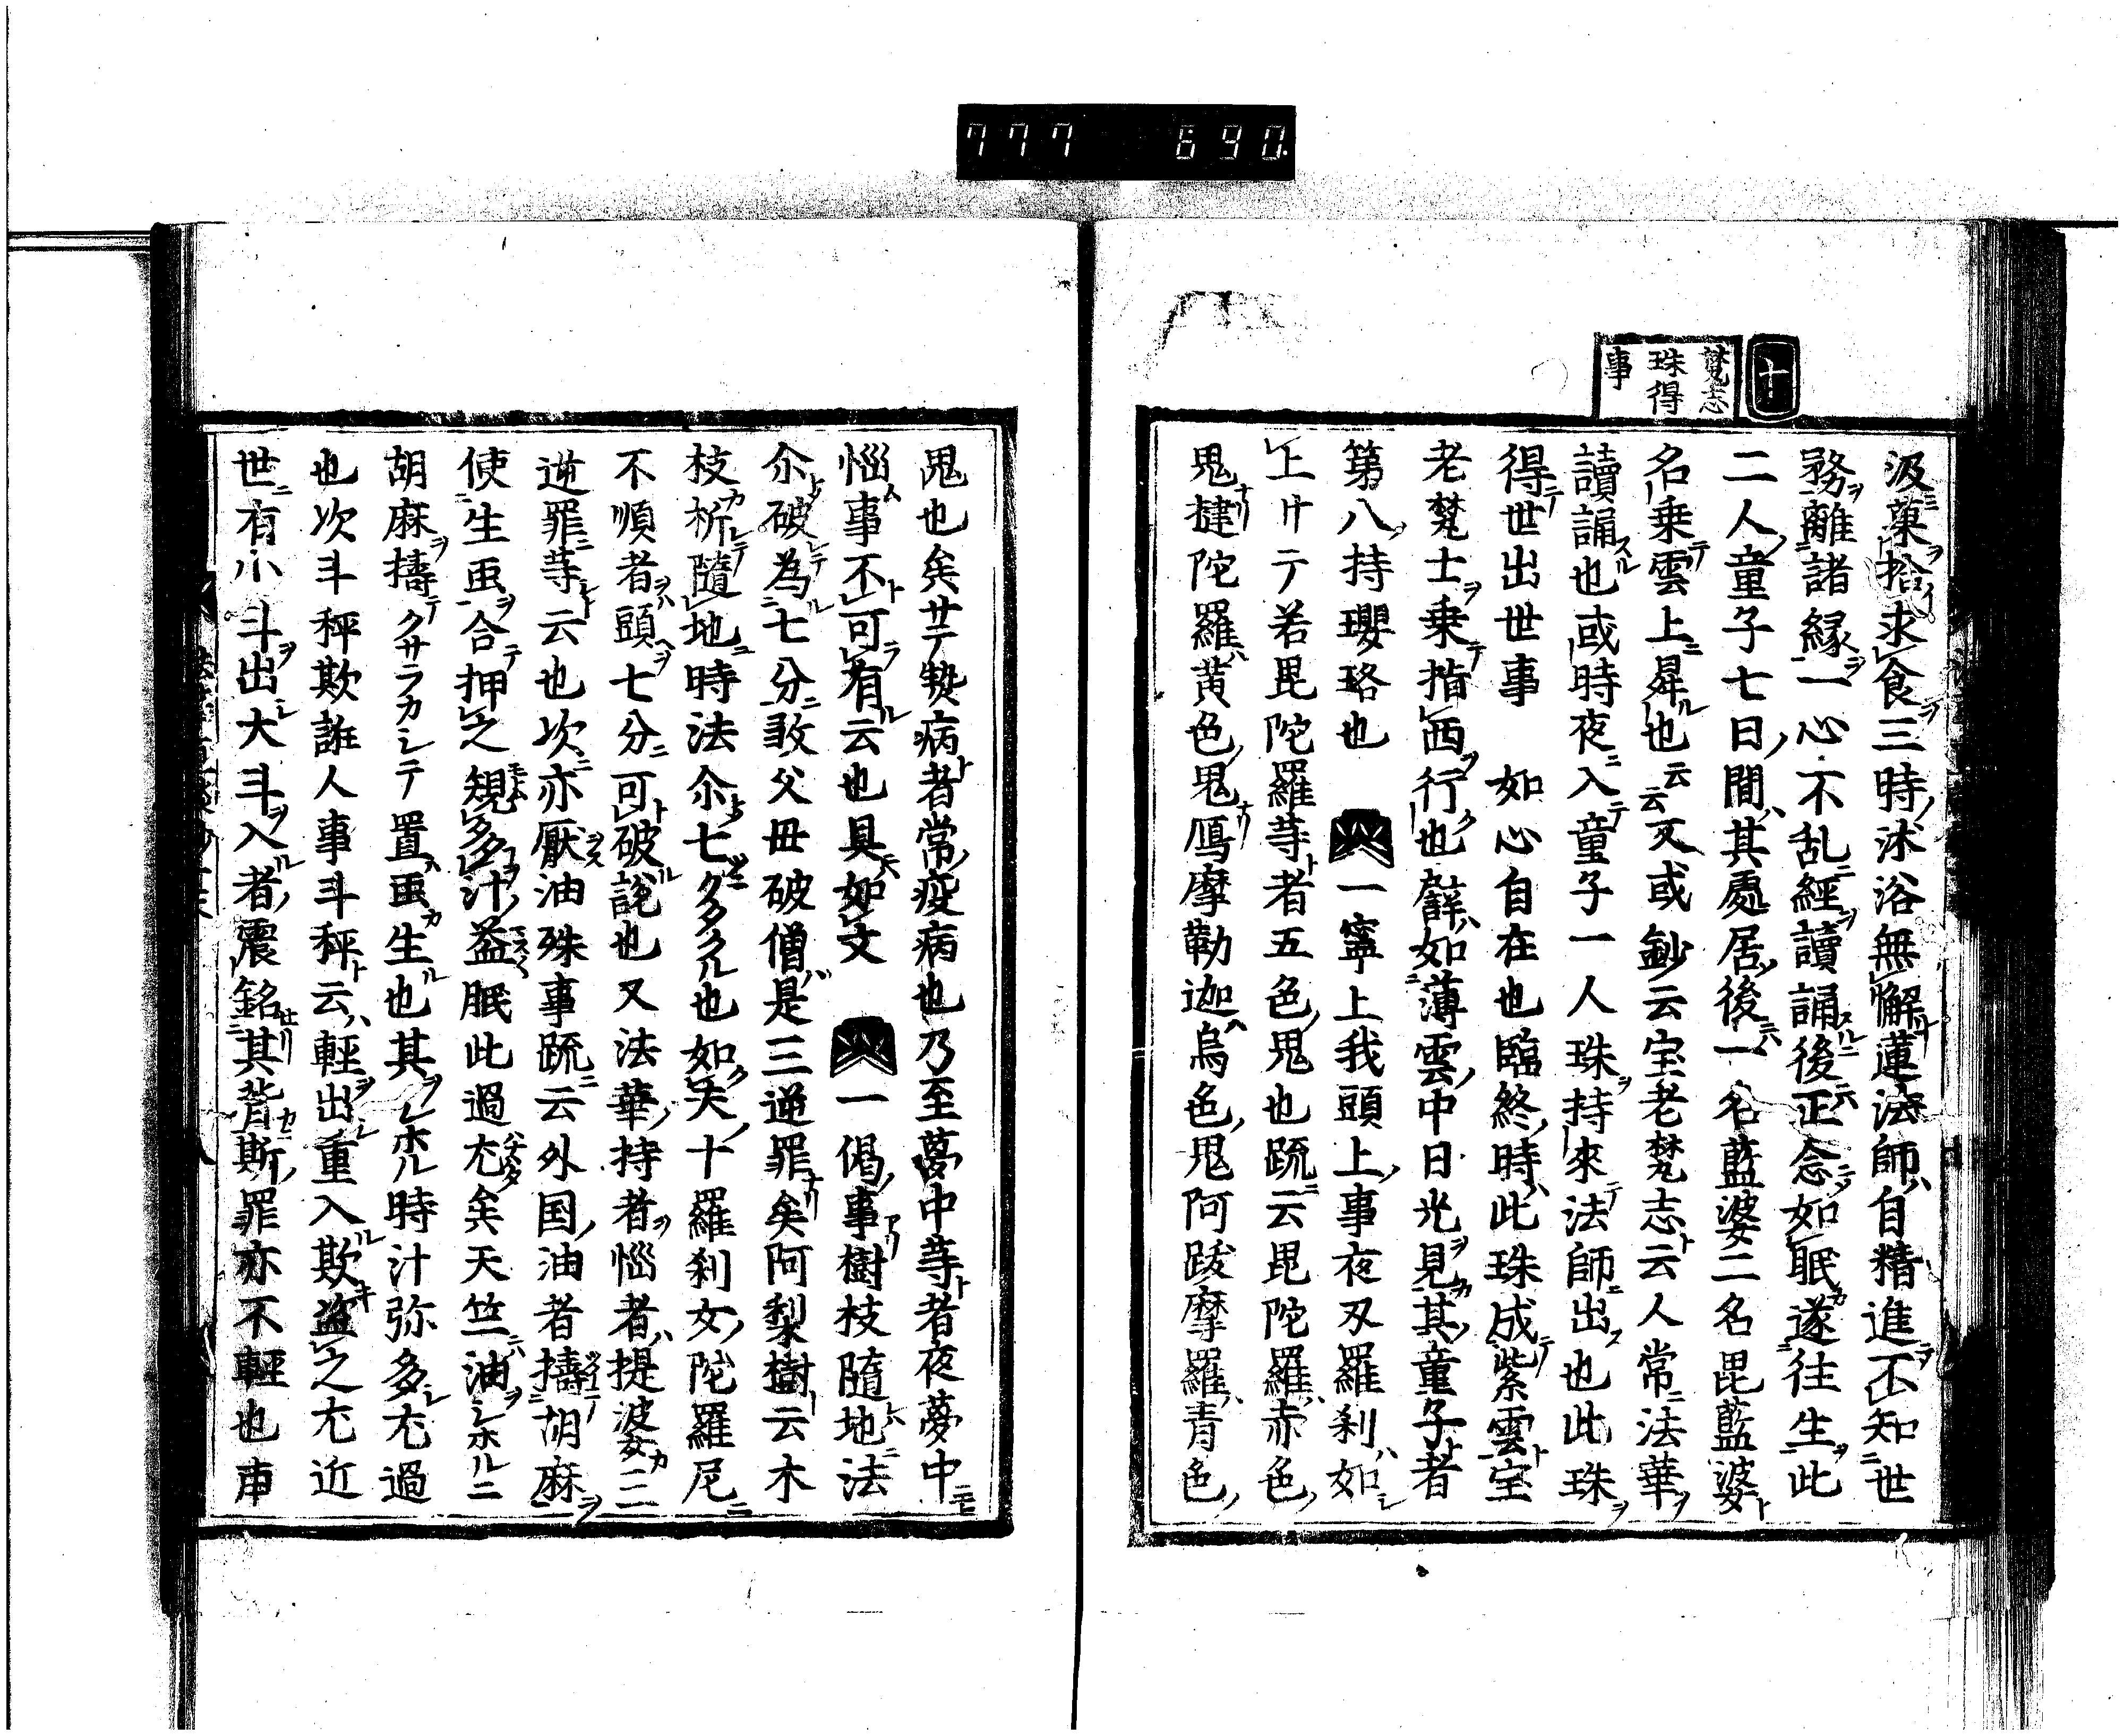 777 690
十
梵志
珠得
事
汲菓拾求食三時沐浴無懈蓮法師自精進不知世
務離諸縁一心不乱經讀誦後正念如眠遂往生此
二人童子七日間其處居後一名藍婆二名毘藍婆
名乗雲上昇也云云又或鈔云宝老梵志云人常法華
讀誦也或時夜入童子一人珠持來法師出也此珠
得世出世事 如心自在也臨終時此珠成紫雲宝
老梵士乗指西行也辟如薄雲中日光見其童子者
第八持瓔珞也 一寧上我頭上事夜叉羅刹如
上ケテ若毘陀羅等者五色鬼也疏云毘陀羅赤色
鬼揵陀羅黄色鬼鳫摩勒迦烏色鬼阿跋摩羅青色
鬼也矣サテ熱病者常疫病也乃至夢中等者夜夢中
惱事不可有云也具如文 一偈事樹枝隨地法
尒破為七分敎父毋破僧是三逆罪矣阿梨樹云木
枝析隨地時法尒七クタクル也如矢十羅刹女陀羅尼
不順者頭七分可破説也又法華持者惱者提婆二
逆罪等云也次亦厭油殊事疏云外国油者擣胡麻
使生虫合押之規多汁益眠此過尤矣天竺油シホルニ
胡麻擣クサラカシテ置虫生也其シホル時汁弥多尤過
也次斗秤欺誑人事斗秤云輕出重入欺盗之尤近
世有小斗出大斗入者震銘其背斯罪亦不輕也申